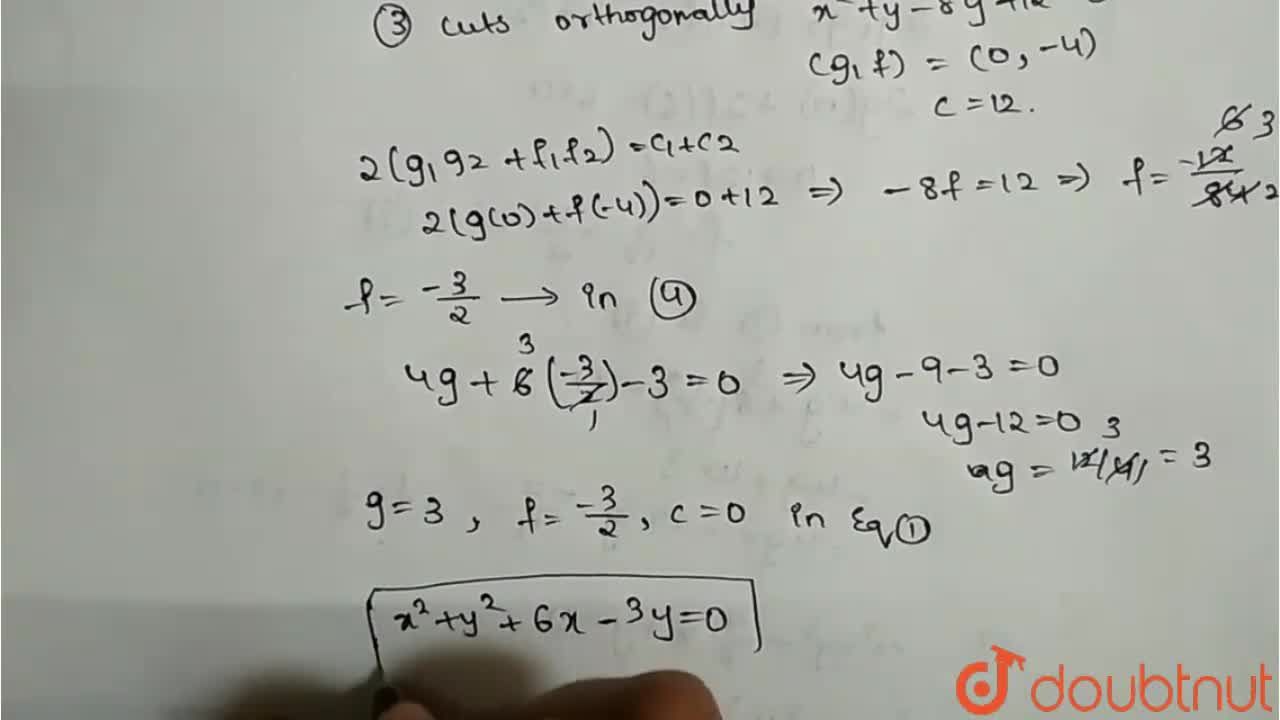 ③ cuts orthogonally x² + y - 8y + 12
(g, f) = (0, -4)
c = 12.
2(g₁g₂ + f₁f₂) = c₁+c2
2(g(0) + f(-4)) = 0+12 ⇒ -8f = 12 ⇒ f = -12/8 6 3 4 2
f = -3/2 → in ④
4g + 6 3 (-3/2) 1 - 3 = 0 ⇒ 4g - 9 - 3 = 0
4g - 12 = 0
g = 12/4 3 1 = 3
g = 3, f = -3/2, c = 0 in Eq ①
x² + y² + 6x - 3y = 0
doubtnut